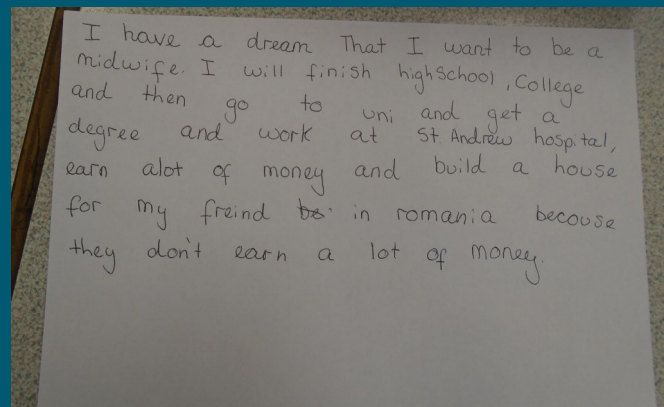 I have a dream That I want to be a
midwife. I will finish high School, College
and then go to uni and get a
degree and work at St Andrew hospital,
earn alot of money and build a house
for my freind in romania becouse
they don't earn a lot of money.